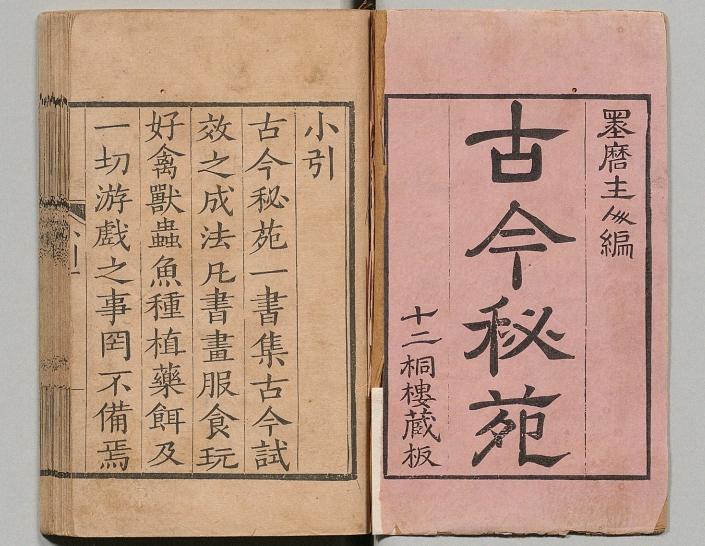 墨磨主人編
古今秘苑
十二桐樓藏板
小引
古今秘苑一書集古今試
效之成法凡書畫服食玩
好禽獸蟲魚種植藥餌及
一切游戲之事罔不備焉